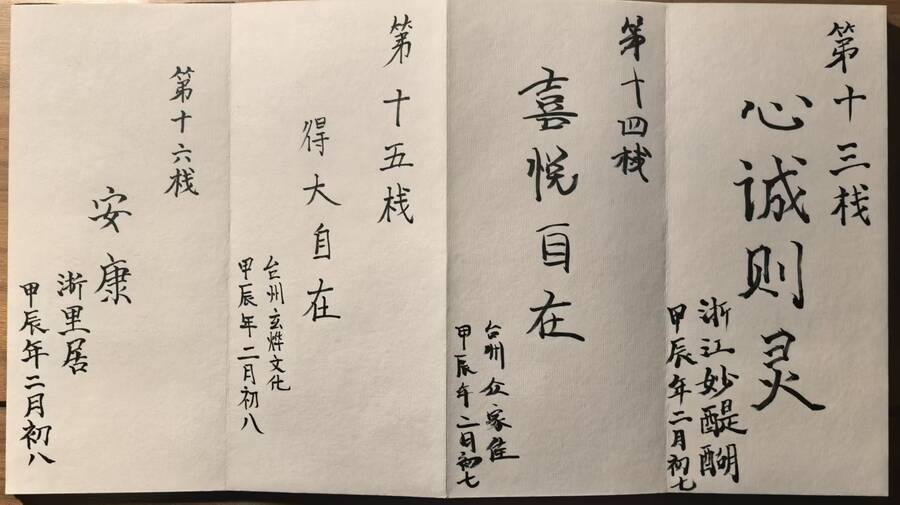 第十三栈
心诚则灵
浙江妙醍醐
甲辰年二月初七
第十四栈
喜悦自在
台州众家佳
甲辰年二月初七
第十五栈
得大自在
台州玄烨文化
甲辰年二月初八
第十六栈
安康
浙里居
甲辰年二月初八